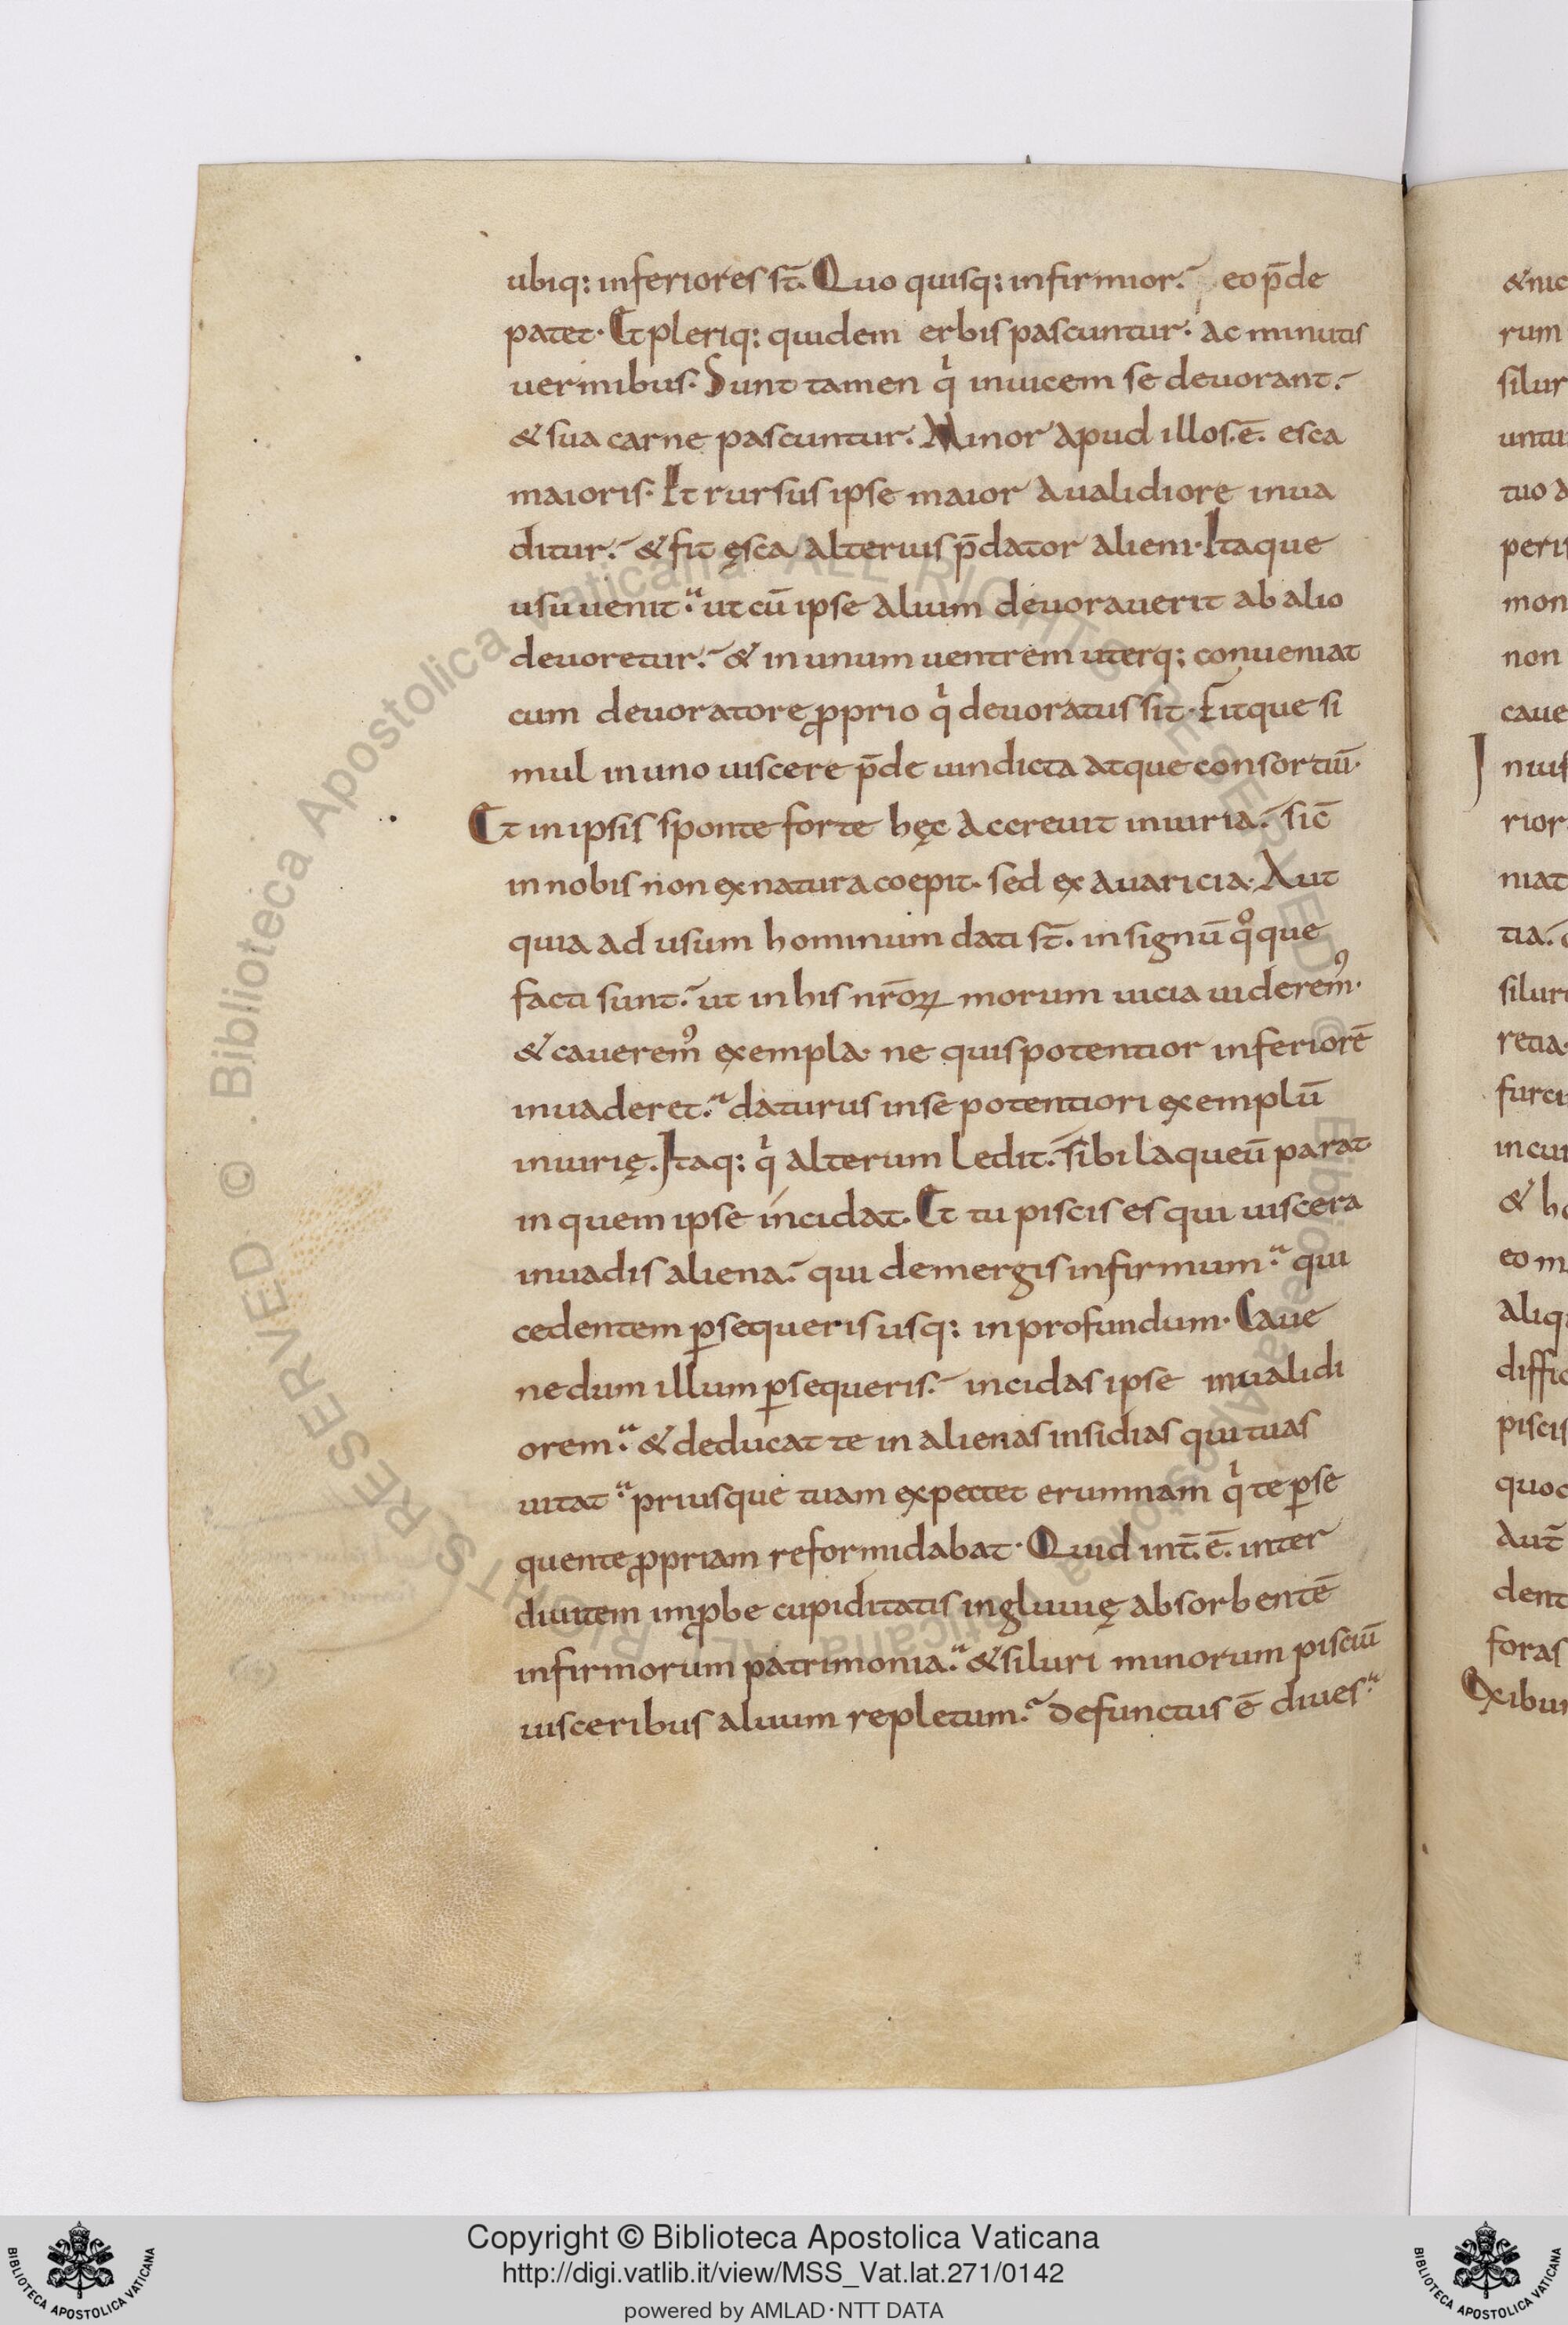 ubiq: inferiores st̄. Quo quisq: infirmior. eo p̄de
patet. Et pleriq: quidem erbis pascuntur. ac minutis
uermibus. Sunt tamen qͥ inuicem se deuorant.
& sua carne pascuntur. Minor apud illos .ē. esca
maioris. Et rursus ipse maior a ualidiore inua
ditur. & fit ęsca alterius p̄dator alieni. Itaque
usu uenit. ut cū ipse alium deuorauerit ab alio
deuoretur. & in unum uentrem uterq: conueniat
cum deuoratore ꝓprio qͥ deuoratus sit. Fitque si
mul in uno uiscere p̄de uindicta atque consortiū.
Et in ipsis sponte forte hęc accreuit iniuria. sic̄
in nobis non ex natura coepit. sed ex auaricia. Aut
quia ad usum hominum dati st̄. in signū qͦque
facti sunt. ut in his nr̄oꝝ morum uicia uideremꝰ.
& caueremꝰ exempla. ne quis potentior inferiorē
inuaderet. daturus in se potentiori exemplū
iniurię. Itaq: qͥ alterum ledit. sibi laqueū parat
in quem ipse incidat. Et tu piscis es qui uiscera
inuadis aliena. qui demergis infirmum. qui
cedentem ꝑsequeris usq: in profundum. Caue
ne dum illum ꝑsequeris. incidas ipse inualidi
orem. & deducat te in alienas insidias qui tuas
uitat. priusque tuam expectet erumnam qͥ te ꝑse
quente ꝓpriam reformidabat. Quid int̄.ē. inter
diuitem imꝓbe cupiditatis ingluuię absorbentē
infirmorum patrimonia. & siluri minorum pisciū
uisceribus aluum repletum. defunctus ē diues.
&nic
rum
silur
untu
tuo a
peris
mon
non
caue
J niuis
rior
niat
tia.
siluri
retia.
furci
in cui
& ho
eo m
aliq
diffic
piscis
quoc
aut̄
dent
foras
Exibun
© Biblioteca Apostolica Vaticana ALL RIGHTS RESERVED
Copyright © Biblioteca Apostolica Vaticana
http://digi.vatlib.it/view/MSS_Vat.lat.271/0142
powered by AMLAD·NTT DATA
BIBLIOTECA APOSTOLICA VATICANA
BIBLIOTECA APOSTOLICA VATICANA